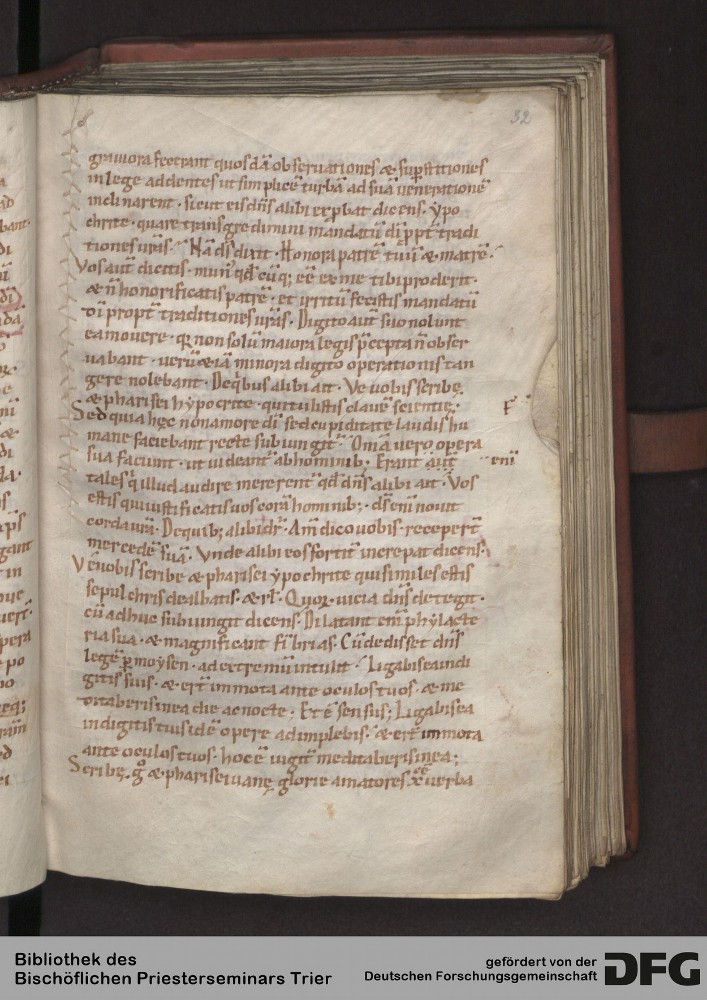 32
grauiora fecerant quosdā obseruationes & sup̄stitiones
in lege addentes ut simplicē turbā ad suā uenerationē
inclinarent. sicut eisdn̄s alibi exp̱bat dicens. ypo
chrite. quare transgredimini mandatū dī ꝓpt̄ tradi
tiones ur̄as. Nā dꝭ dixit. Honora patrē tuū & matrē.
Vos aut̄ dicitis. mun' qd̄ cūq; eē ex me tibi proderit.
& n̄ honorificatis patrē. et irritū fecistis mandatū
dī propt̄ traditiones ur̄as. Digito aut̄ suo nolunt
ea mouere. qr̄ non solū maiora legis p̄cepta n̄ obser
uabant. uerū & iā minora digito operationis tan
gere nolebant. Deq̄bus alibi ait. Ve uobis scribę
& pharisei hypocrite. qui tulistis clauē scientię.
Sed quia hęc non amore dī sed cupiditate laudis hu
mane faciebant recte subiungit. Om̄a uero opera
sua faciunt. ut uideant̄ ab hominib; Erant aut̄
tales q̄ illud audire mererent̄ qd̄ dn̄s alibi ait. Vos
estis qui iustificatis uos corā hominib;. dꝭ em̄ nouit
corda ur̄a. De quib; alibi dr̄. Am̄ dico uobis. receper̄t
mercedē suā. Vnde alibi eos fortit̄ increpat dicens.
Vę uobis scribe & pharisei ypochrite qui similes estis
sepulchris dealbatis. & rl̄. Quoꝝ uicia dn̄s detegit.
cū adhuc subiungit dicens. Dilatant em̄ phylacte
ria sua. & magnificant fībrias. Cū dedisset dn̄s
legē ꝑ moysen. ad extremū intulit. Ligabis ea in di
gitis suis. & er̄t immota ante oculos tuos. & me
ditaberis in ea die ac nocte. Et ē sensus; Ligabis ea
in digitis tuis idē opere adimplebis. & er̄t immota
ante oculos tuos. hoc ē uigit̄ meditaberis in ea;
Scribę. g° & pharisei uanę glorie amatores xē uerba
F
em̄
Bibliothek des
Bischöflichen Priesterseminars Trier
gefördert von der
Deutschen Forschungsgemeinschaft
DFG